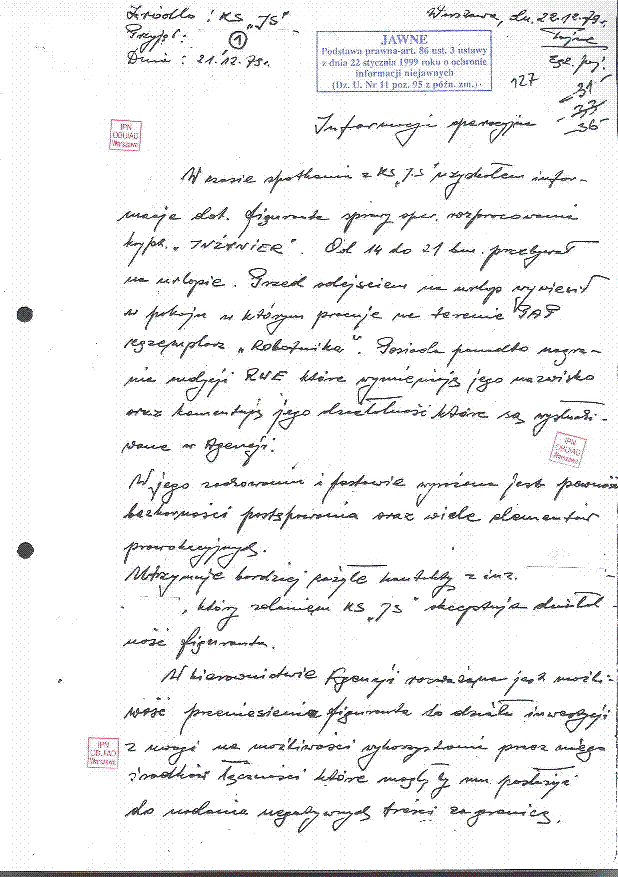 Źródło: KS „JS"
Przyjął:
Dnia: 21.12.79.
1
Warszawa, dn. 22.12.79r.
Tajne
Egz. poj.
JAWNE
Podstawa prawna-art. 86 ust. 3 ustawy
z dnia 22 stycznia 1999 roku o ochronie
informacji niejawnych
(Dz. U. Nr 11 poz. 95 z późn. zm.)
127
31
33
36
IPN
OBUiAD
Warszawa
Informacja operacyjna
W czasie spotkania z KS „JS" uzyskałem infor-
macje dot. figuranta sprawy oper. rozpracowania
krypt. „INŻYNIER". Od 14 do 21 bm. przebywał
na urlopie. Przed odejściem na urlop wywiesił
w pokoju w którym pracuje na terenie PAP
egzemplarz „Robotnika". Posiada ponadto nagra-
nie audycji RWE które wymieniają jego nazwisko
oraz komentują jego działalność które są wysłuchi-
wane w Agencji.
IPN
OBUiAD
Warszawa
W jego zachowaniu i postawie wyrażona jest pewność
bezkarności postępowania oraz wiele elementów
prowokacyjnych.
Utrzymuje bardziej zażyłe kontakty z inż.
, który zdaniem KS „JS" akceptuje działal-
ność figuranta.
W kierownictwie Agencji rozważana jest możli-
wość przeniesienia figuranta do działu inwestycji
z uwagi na możliwości wykorzystania przez niego
środków łączności które mogły by mu posłużyć
do nadania negatywnych treści zagranicę.
IPN
OBUiAD
Warszawa